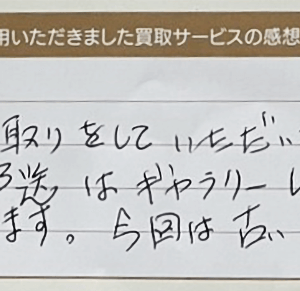 用いただきました買取サービスの感想
取りをしていただい
送はギャラリーし
ます。今回は古い